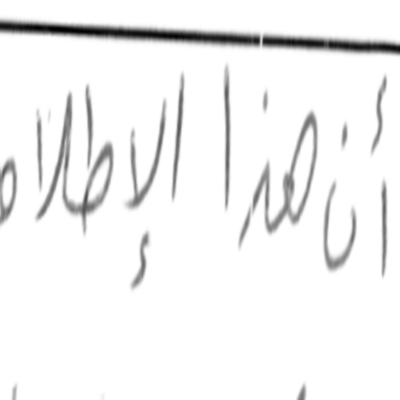 أن هذا الإطلا